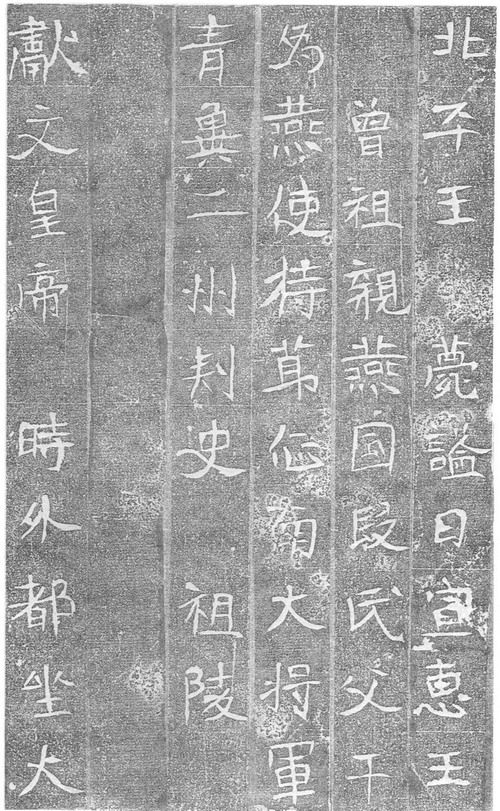 北平王薨謚曰宣恵王
曾祖親燕国段氏父干
為燕使持莭征南大将軍
青冀二州刾史祖陵
獻文皇帝時外都坐大